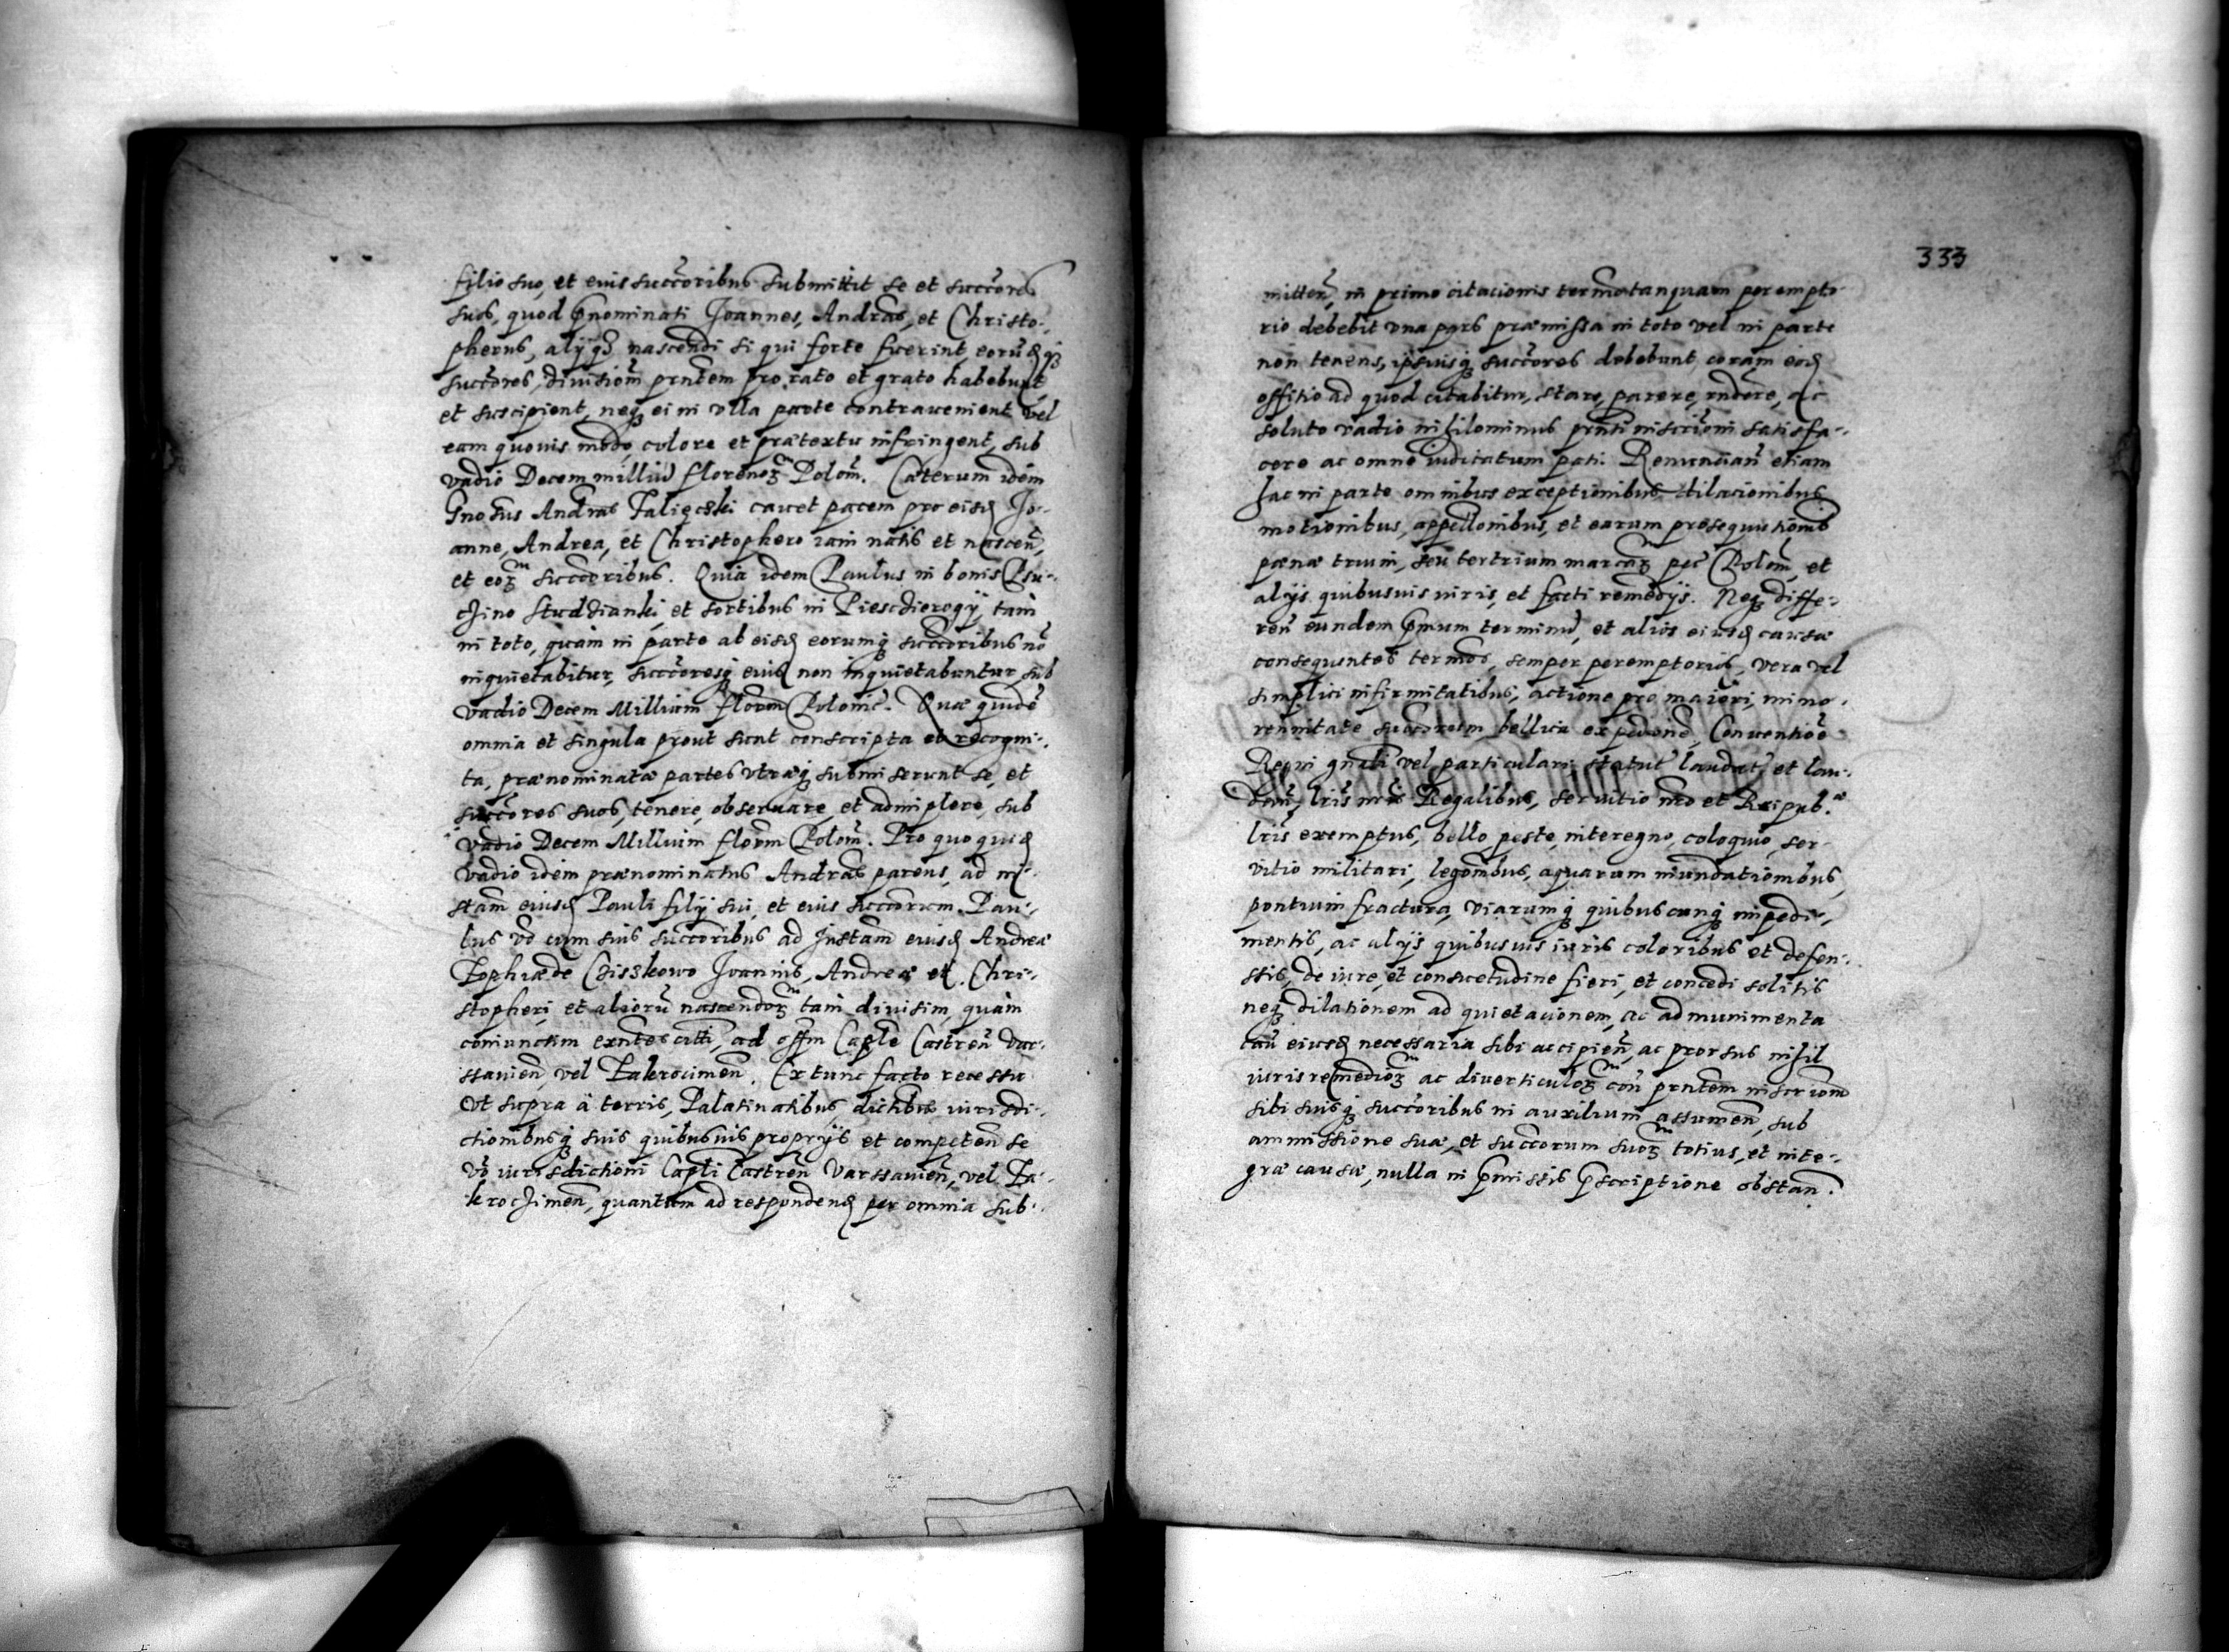 filio suo, et eius succ̃oribus submittit se et succ̃ores
suos, quod p̃nominati Joannes, Andreas, et Christo-
pherus, alijq́з nascendi si qui forte fuerint eorũdq́з
succ̃ores, diuisiom̃ prñtem pro rato et grato habebunt,
et suscipient, neqз ei in vlla parte contrauenient, vel
eam quouis modo, colore et prætextu infringent, sub
vadio Decem milliũ florenoꝝ Polom̃. Cæterum idem
Gnosus Andreas Zaliwski cauet pacem pro eisd Jo-
anne, Andrea, et Christophero iam natis et nascen̄,
et eoꝝ succ̃oribus. Quia idem Paulus in bonis Psu-
chino Studzianki, et sortibus in Piescdierogij, tam
in toto, quam in parte ab eisd eorumqз succ̃oribus nõ
inquietabitur, succ̃oresqз eius non inquietabuntur, sub
vadio Decem Millium florem Polonic̃. Quæ quidẽ
omnia et singula prout sunt conscripta et recogni-
ta, prænominatæ partes vtræqз submiserunt se, et
succ̃ores suos, tenere, obseruare, et adimplere, sub
vadio Decem Millium florm̃ Polom̃. Pro quo quid
vadio idem prænominatus Andreas parens, ad in-
stam̃ eiusd Pauli filij sui, et eius succ̃orum. Pau-
lus võ cum suis succ̃oribus ad Jnstam̃ eiusd Andreæ
Zophiæ de Ciszkowo Joannis, Andreæ et Chri-
stopheri, et aliorũ nascendoꝝ tam diuisim, quam
coniunctim exñtes citti, ad offm Capłe Castren̄ Var-
ssauien̄, vel Zakrocimen̄. Ex tunc facto recessu
vt supra à terris, Palatinatibus dictibus, iurisdi-
ctionibusqз suis quibusuis proprijs et competen̄ se
võ iurisdictioni Capłi Castren̄ Varssauien̄, vel Za-
krochimen̄, quantum ad respondend per omnia sub-
333
mitten̄, in primo citacionis term̃o tanquam perempto-
rio debebit vna pars præmissa in toto vel in parte
non tenens, ipsiusqз succ̃ores debebunt coram eod
offitio ad quod citabitur, stare, parere, rñdere, ac
soluto vadio nihilominus prñti inscrioni satisfa-
cere ac omne iudicatum pati. Renuncian̄ etiam
hac in parte omnibus exceptionibus dilacionibus
motionibus, appellonibus, et earum prosequutionib
pœnæ trium, seu tertrium marcaꝝ pec̃ Polom̃, et
alijs quibusuis iuris, et facti remedijs. Neqз diffe-
ren̄ eundem p̃mum terminũ, et alios eiusd causæ
consequentes termos, semper peremptorios, vera vel
simplici infirmitatibus, actione pro maiori, mino-
rennitate succ̃orum bellica expedione, Conuentioẽ
Regni gnali vel particulari, statut laudat, et lau-
dan̄, lris nris Regalibus, seruitio nr̃o et Reipub.æ
lris exemptus, bello peste, interegno, coloquio, ser-
vitio militari, legombus, aquarum inundationibus,
pontium fractura, viarumqз quibuscunqз impedi-
mentis, ac alijs quibusuis iuris coloribus et defen-
ssis, de iure, et consuetudine fieri, et concedi solitis
neqз dilationem ad quietacionem, ac ad munimenta
cau eiusd necessaria sibi accipien̄, ac prorsus nihil
iuris remedioꝝ ac diuerticuloꝝ con̄ prñtem inscriom̃
sibi suisqз succ̃oribus in auxilium assumen̄, sub
ammissione suæ, et succ̃orum suoꝝ totius, et inte-
græ causæ, nulla in p̃missis p̃scriptione obstan̄.